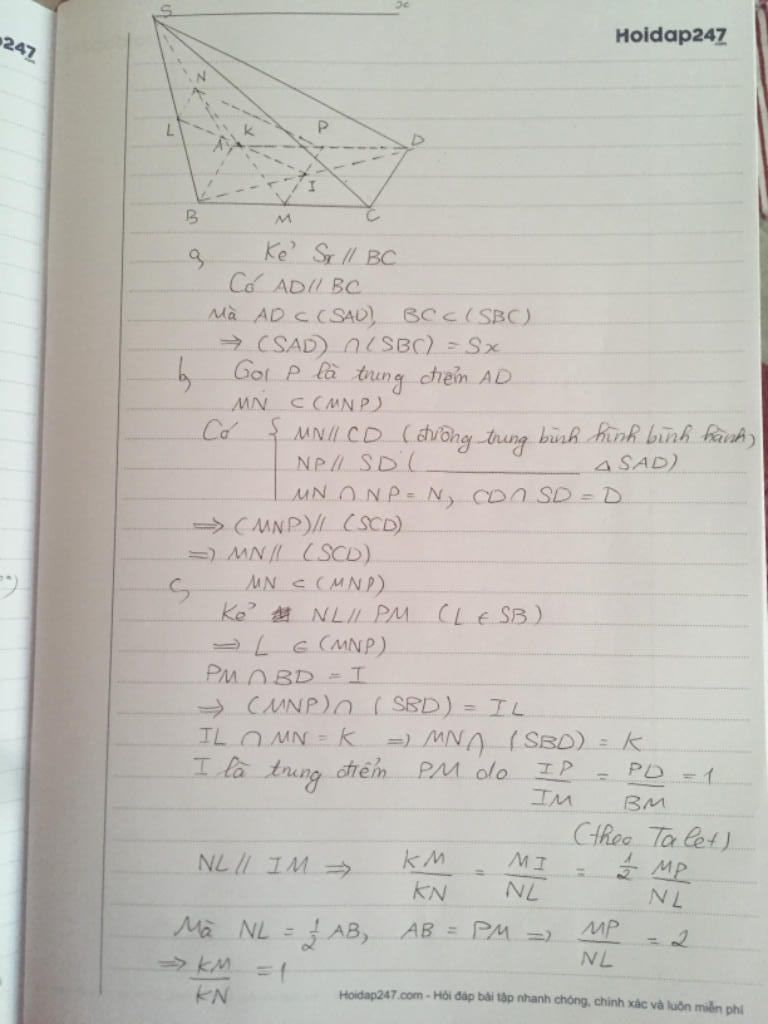 247
Hoidap247
S
x
N
L
A
K
P
D
I
B
M
C
a, Kẻ Sx // BC
Có AD // BC
Mà AD ⊂ (SAD), BC ⊂ (SBC)
⇒ (SAD) ∩ (SBC) = Sx
b, Gọi P là trung điểm AD
MN ⊂ (MNP)
Có { MN // CD (đường trung bình hình bình hành)
NP // SD ( __________ Δ SAD)
MN ∩ NP = N, CD ∩ SD = D
⇒ (MNP) // (SCD)
⇒ MN // (SCD)
c, MN ⊂ (MNP)
Kẻ NL // PM (L ∈ SB)
⇒ L ∈ (MNP)
PM ∩ BD = I
⇒ (MNP) ∩ (SBD) = IL
IL ∩ MN = K ⇒ MN ∩ (SBD) = K
I là trung điểm PM do IP/IM = PD/BM = 1
(theo Ta let)
NL // IM ⇒ KM/KN = MI/NL = 1/2 MP/NL
Mà NL = 1/2 AB, AB = PM ⇒ MP/NL = 2
⇒ KM/KN = 1
Hoidap247.com - Hỏi đáp bài tập nhanh chóng, chính xác và luôn miễn phí